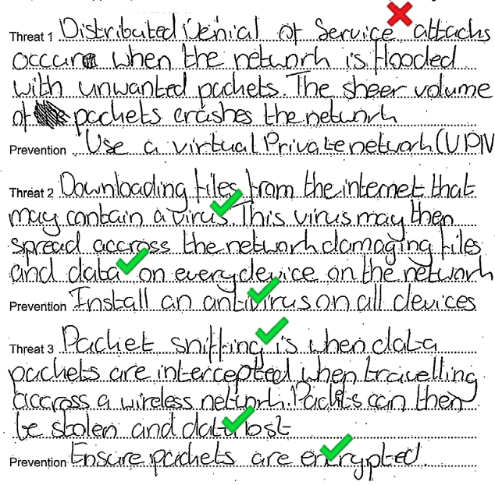 Threat 1 Distributed Denial of Service attacks
occurs when the network is flooded
with unwanted packets. The sheer volume
of packets crashes the network
Prevention Use a virtual Private network (VPN
Threat 2 Downloading files from the internet that
may contain a virus This virus may then
spread accross the network damaging files
and data on every device on the network
Prevention Install an antivirus on all devices
Threat 3 Packet sniffing is when data
packets are intercepted when travelling
accross a wireless network. Packets can then
be stolen and data lost
Prevention Ensure packets are encrypted.